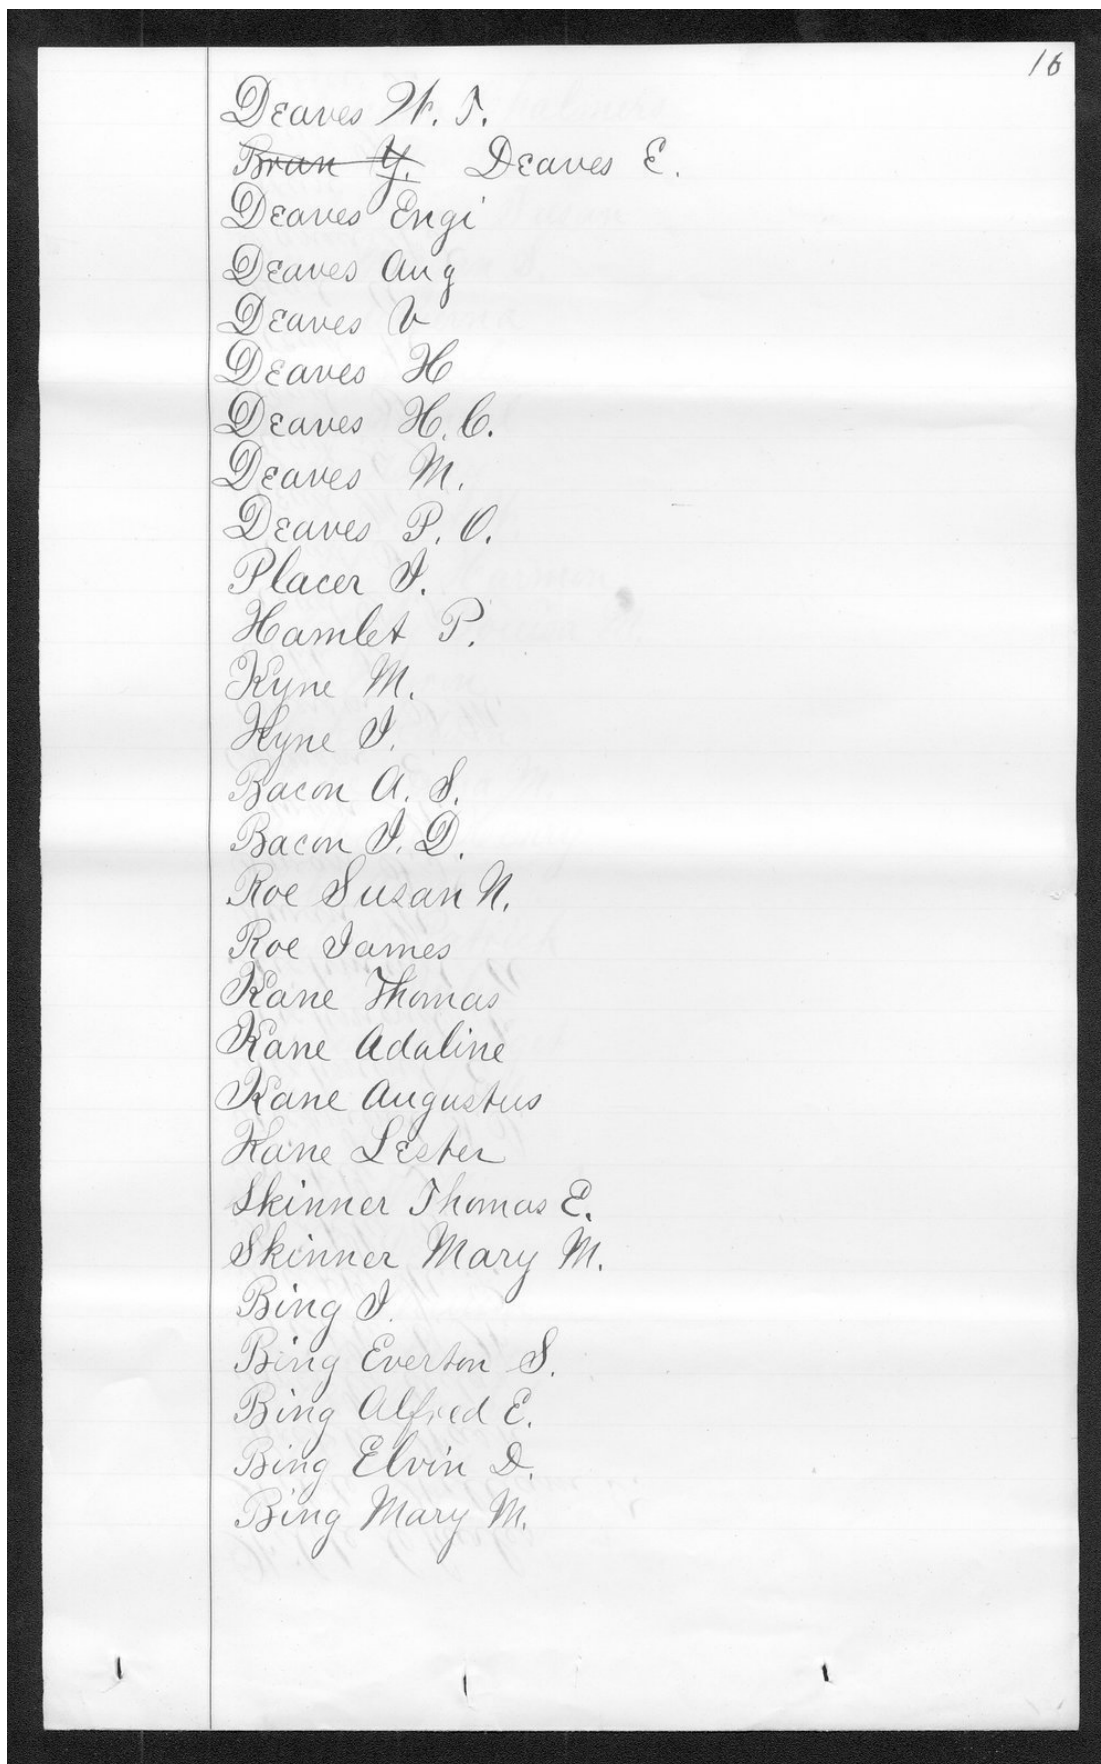 16
Deaves W. T.
Bran Y. Deaves E.
Deaves Engi
Deaves Aug
Deaves V
Deaves H
Deaves H. C.
Deaves M.
Deaves P. O.
Placer I.
Hamlet P.
Kyne M.
Kyne I.
Bacon A. S.
Bacon I. D.
Roe Susan N.
Roe James
Kane Thomas
Kane Adaline
Kane Augustus
Kane Lester
Skinner Thomas E.
Skinner Mary M.
Bing I.
Bing Everton S.
Bing Alfred E.
Bing Elvin D.
Bing Mary M.